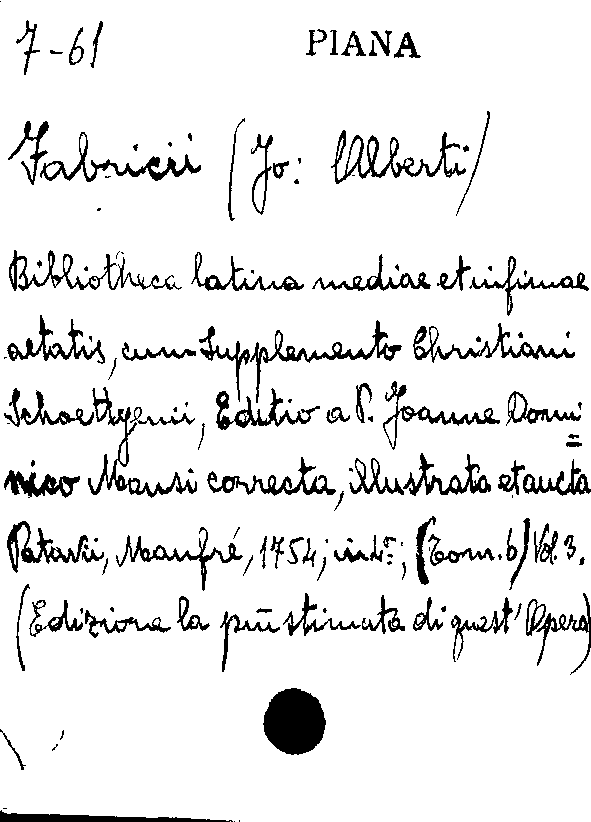 7-61
PIANA
Fabricii (Jo: Alberti)
Bibliotheca latina mediae et infimae
aetatis, cum Supplemento Christiani
Schoettgenii, Editio a P. Joanne Domi=
nico Mansi correcta, illustrata et aucta
Patavii, Manfrè, 1754; in 4º; (Tom. 6) Vol. 3.
(Edizione la più stimata di quest' Opera)